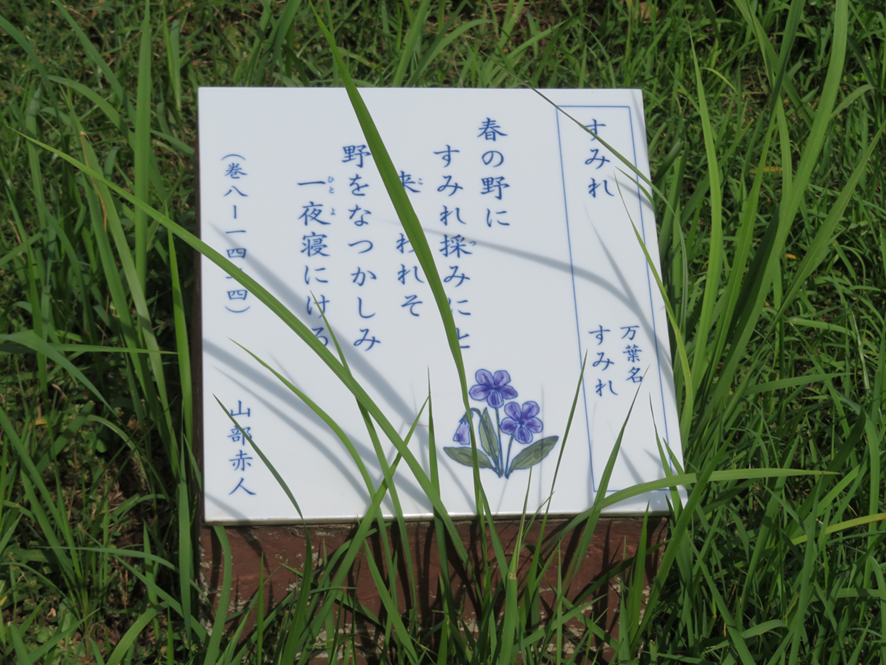 すみれ
万葉名
すみれ
春の野に
すみれ採みにと
来しわれそ
野をなつかしみ
一夜寝にける
（巻八ー一四二四）
山部赤人